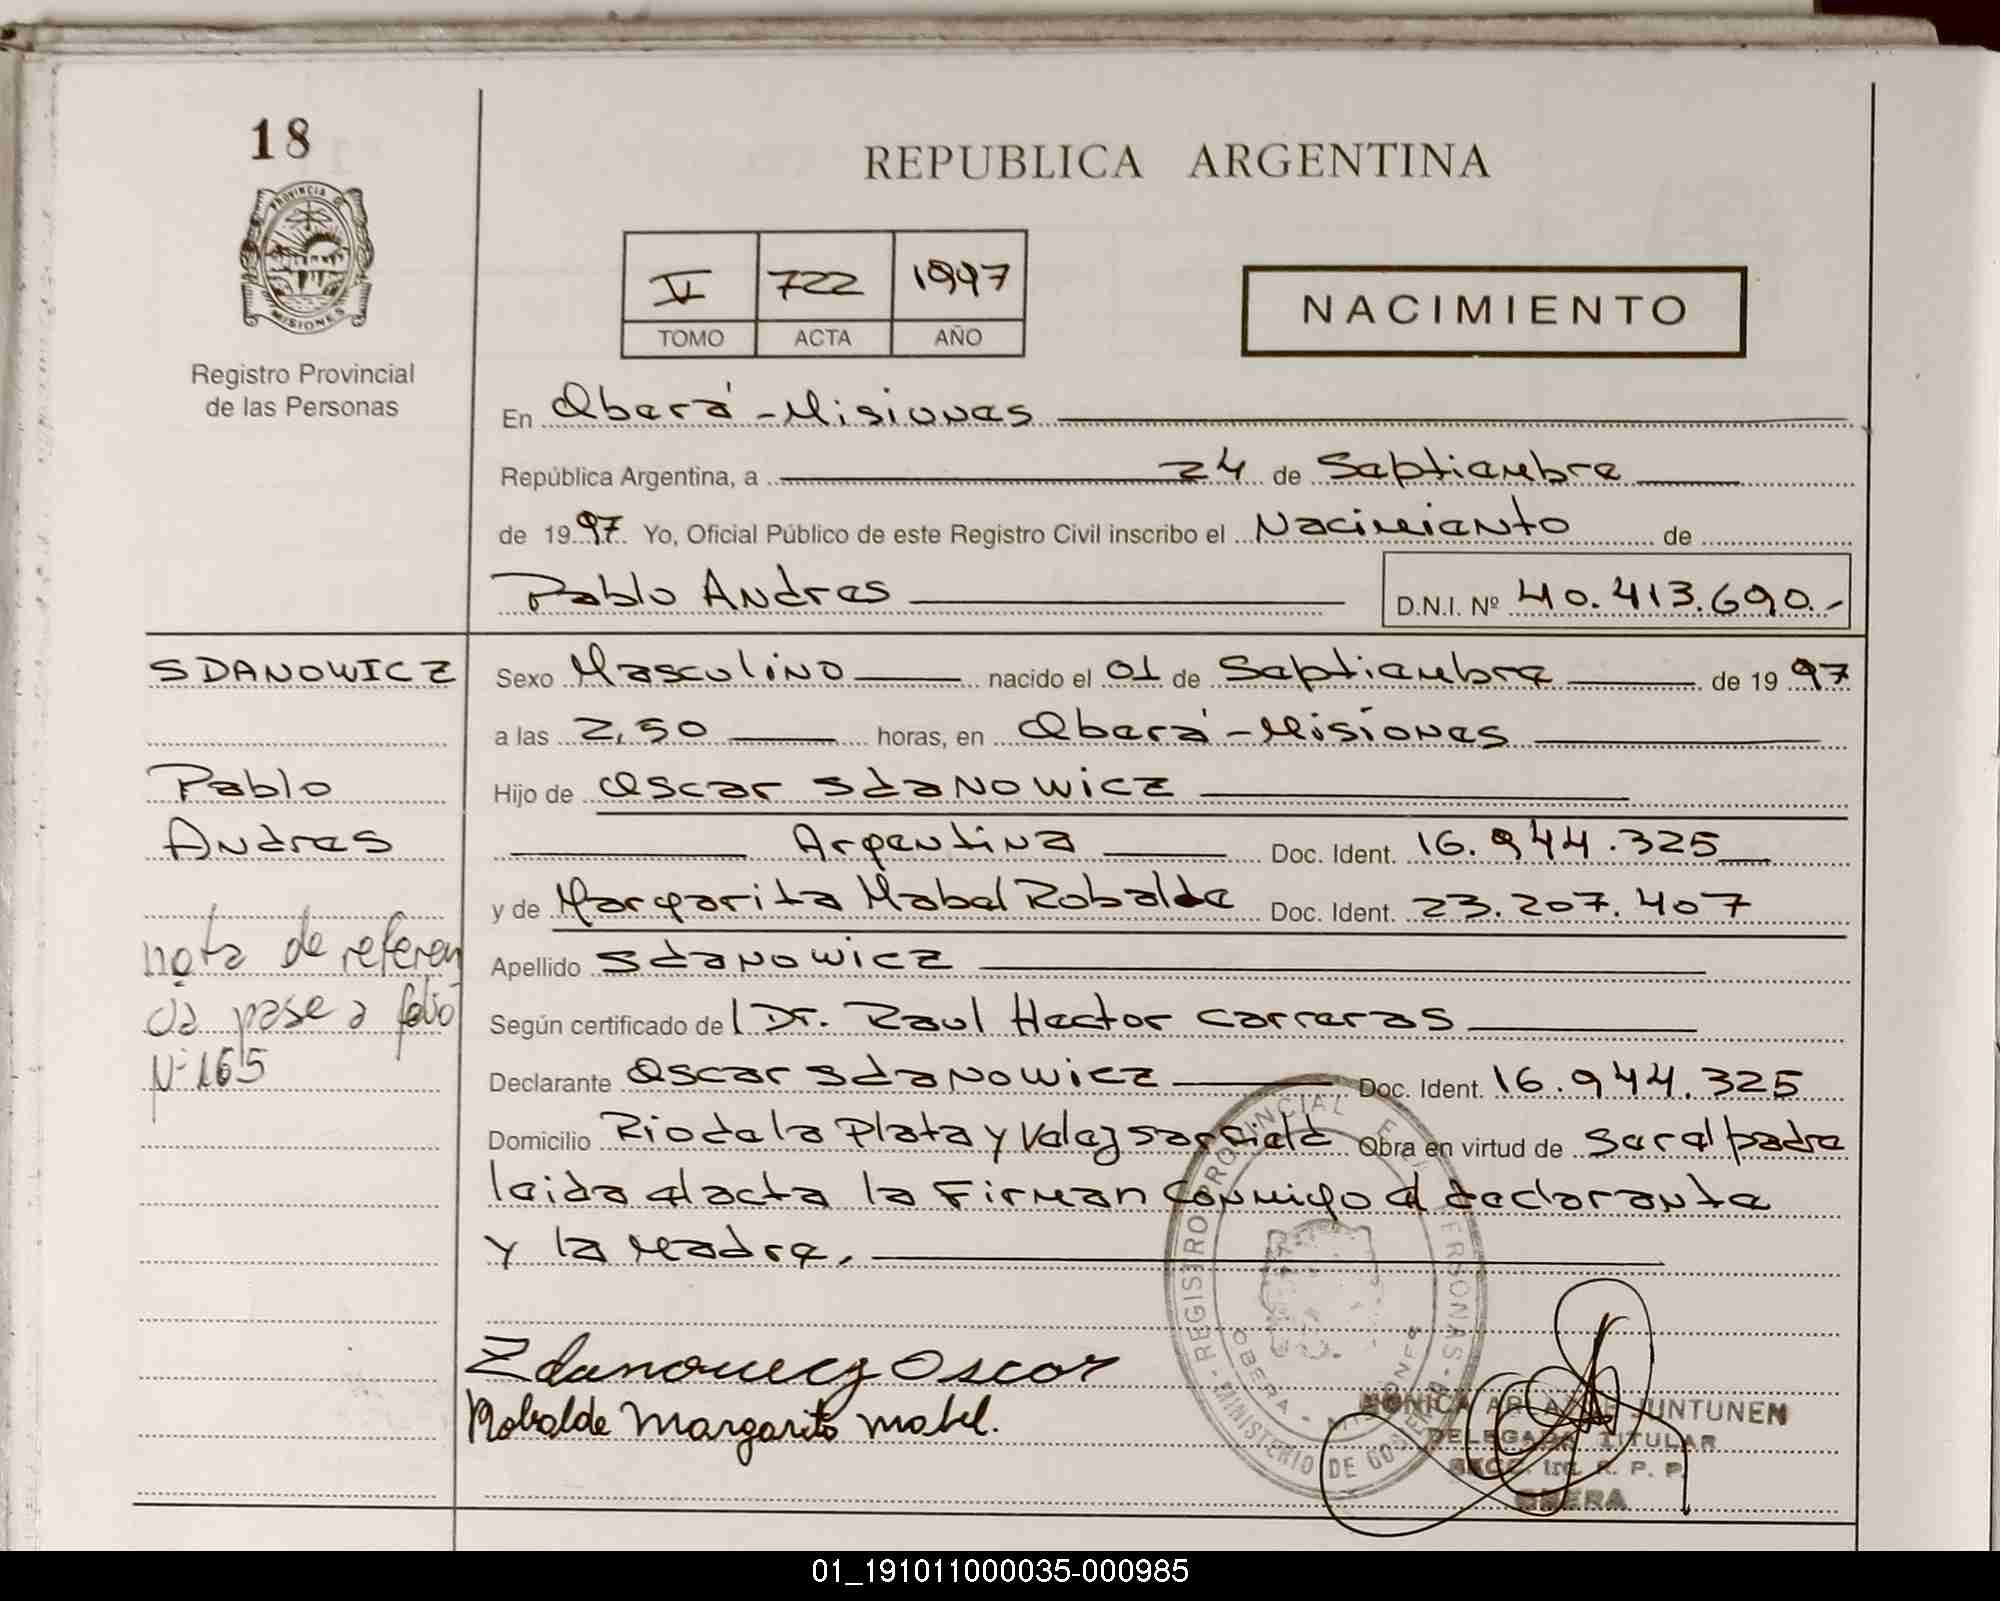 18
PROVINCIA DE
MISIONES
Registro Provincial
de las Personas
REPUBLICA ARGENTINA
V 722 1997
TOMO ACTA AÑO
NACIMIENTO
En Oberá - Misiones
República Argentina, a 24 de Septiembre
de 1997 Yo, Oficial Público de este Registro Civil inscribo el Nacimiento de
Pablo Andres D.N.I. Nº 40.413.690.-
SDANOWICZ
Pablo
Andres
nota de referen
cia pase a folio
Nº 165
Sexo Masculino nacido el 01 de Septiembre de 1997
a las 2,50 horas, en Oberá - Misiones
Hijo de Oscar Sdanowicz
Argentina Doc. Ident. 16.944.325
y de Margarita Mabel Robalde Doc. Ident. 23.207.407
Apellido Sdanowicz
Según certificado del Dr. Raul Hector Carreras
Declarante Oscar Sdanowicz Doc. Ident. 16.944.325
Domicilio Rio de la Plata y Velez Sarfield Obra en virtud de Ser el padre
leida el acta la Firman Conmigo el declarante
y la madre,
Zdanowicz Oscar
Robalde Margarita Mabel.
REGISTRO PROVINCIAL DE PERSONAS - MINISTERIO DE GOBIERNO
OBERA - MISIONES
MONICA JUNTUNEN
DELEGADA TITULAR
R. P. P.
OBERA
01_191011000035-000985